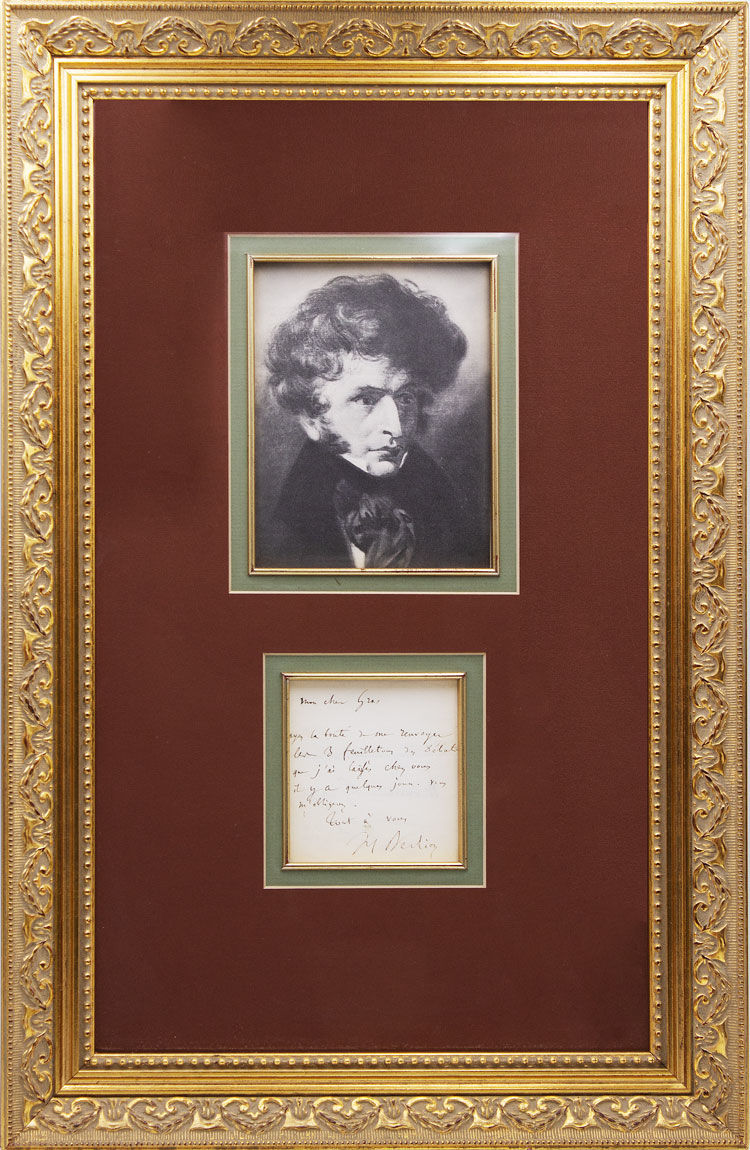 mon cher Gras
ayez la bonté de me renvoyer
les 3 feuilletons des Débats
que j'ai laissés chez vous
il y a quelques jours. vous
m'obligerez.
Tout à vous
H Berlioz